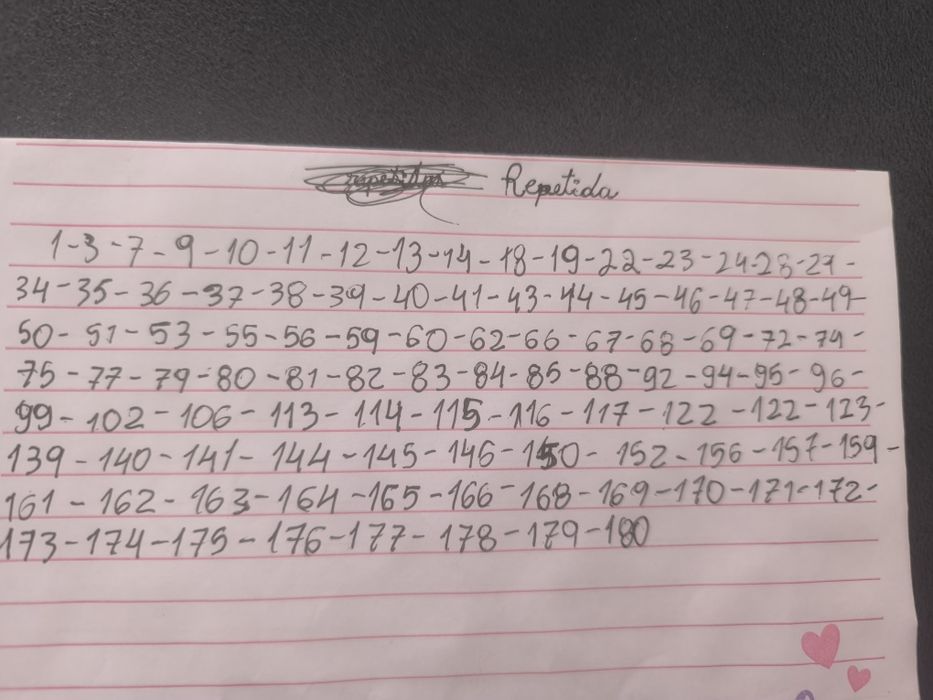 Repetida
1-3-7-9-10-11-12-13-14-18-19-22-23-24-28-27-
34-35-36-37-38-39-40-41-43-44-45-46-47-48-49-
50-51-53-55-56-59-60-62-66-67-68-69-72-74-
75-77-79-80-81-82-83-84-85-88-92-94-95-96-
99-102-106-113-114-115-116-117-122-122-123-
139-140-141-144-145-146-150-152-156-157-159-
161-162-163-164-165-166-168-169-170-171-172-
173-174-175-176-177-178-179-180